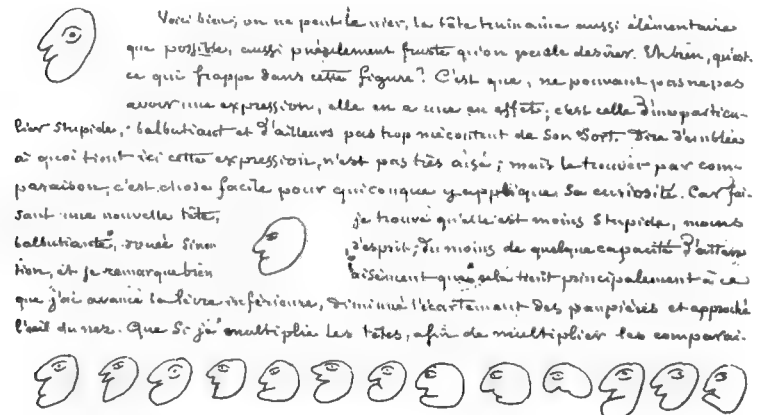 Voici bien, on ne peut le nier, la tête humaine aussi élémentaire
que possible, aussi puérilement fruste qu'on puisse desirer. Eh bien, qu'est
ce qui frappe dans cette figure? C'est que, ne pouvant pas ne pas
avoir une expression, elle en a une en effet; c'est celle d'un particu-
lier stupide, balbutiant et d'ailleurs pas trop mécontent de son sort. Dire d'emblée
à quoi tient ici cette expression, n'est pas très aisé; mais la trouver par com-
paraison, c'est chose facile pour quiconque y applique sa curiosité. Car fai-
sant une nouvelle tête, je trouve qu'elle est moins stupide, moins
balbutiante, douée sinon d'esprit, du moins de quelque capacité d'atten
tion, et je remarque bien aisément que cela tient principalement à ce
que j'ai avancé la lèvre inférieure, diminué l'écartement des paupières et approché
l'œil du nez. Que si je multiplie les têtes, afin de multiplier les comparai-